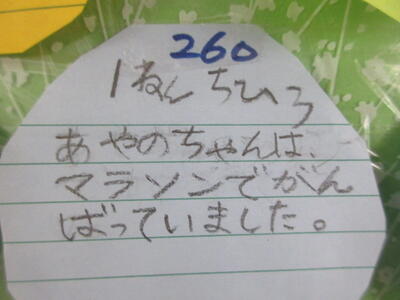 260
1ねん ちひろ
あやのちゃんは、
マラソンでがん
ばっていました。